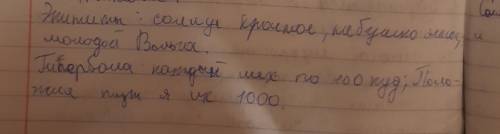 Эпитеты: солнце красное, небушко ясное, и
молодой Вольга.
Гипербола каждый мех по 100 пуд; Поло-
жил я их 1000.